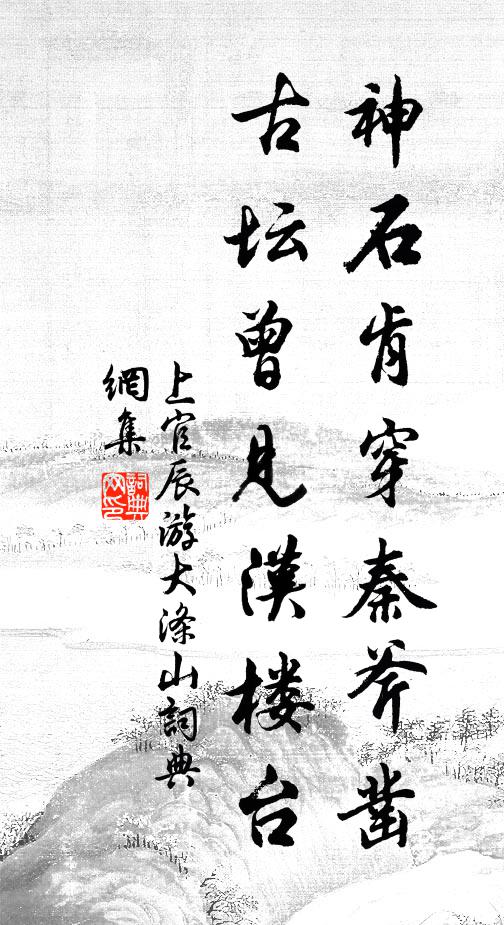 神石肯穿秦斧凿
古坛曾见漢楼台
上官辰游大涤山詞典
網集
詞典
网印